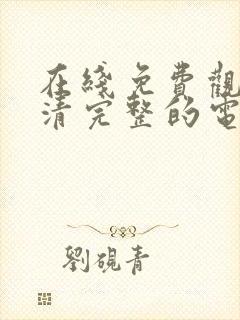 在綫免費觀
清完整的電
劉硯青